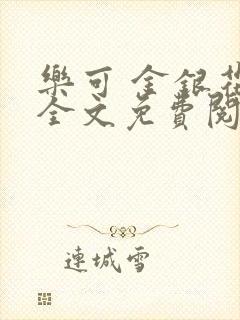 樂可 金銀花
全文免費閱
連城雪